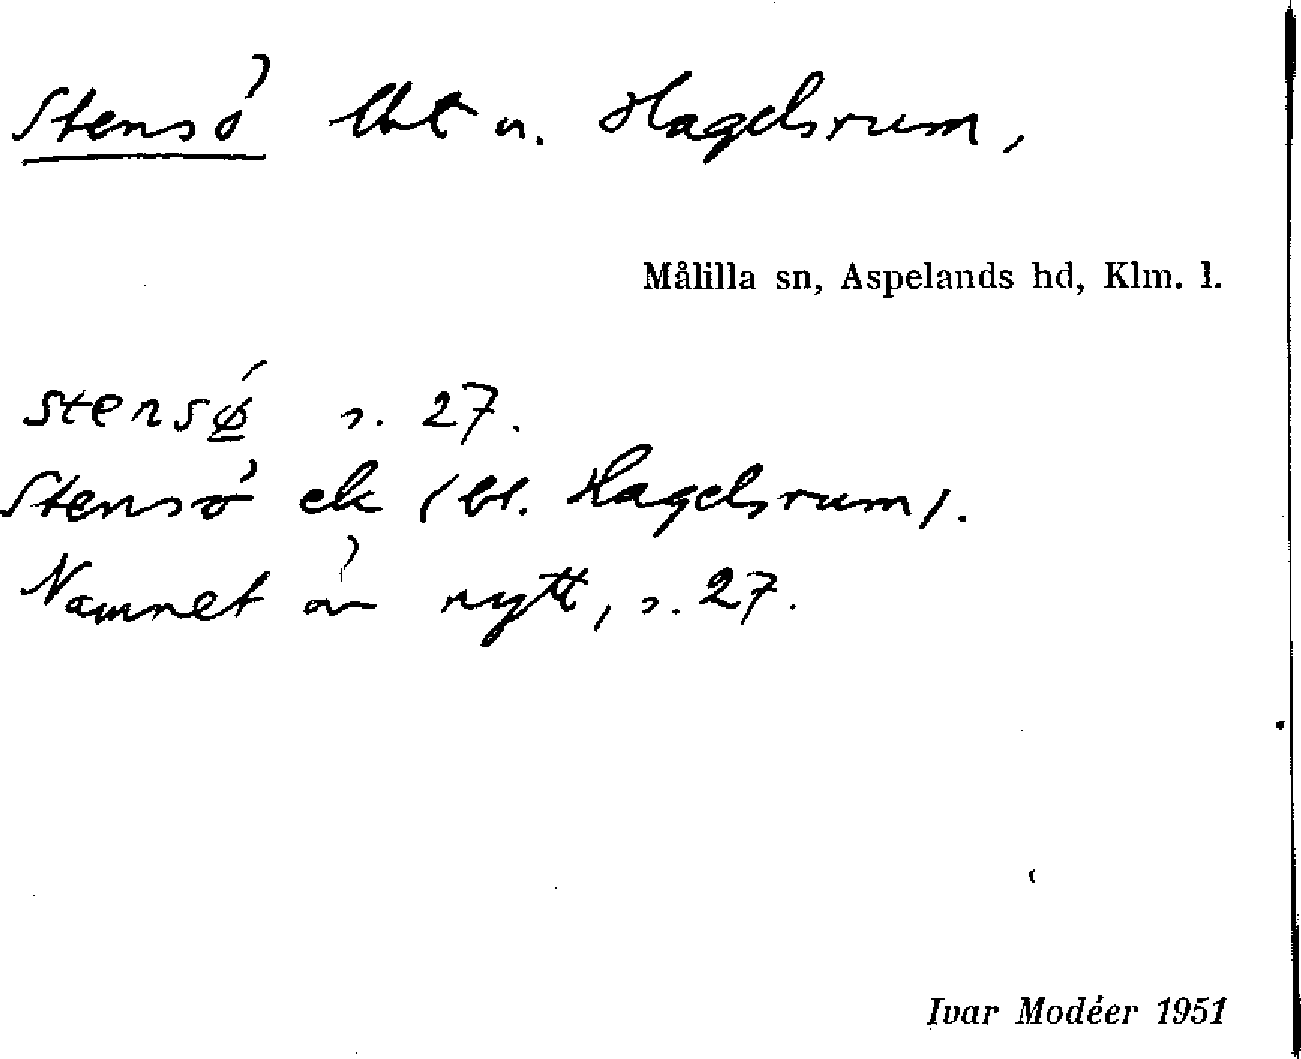 Stensö lht u. Hagelsrum,
Målilla sn, Aspelands hd, Klm. l.
stensø s. 27.
Stensö ek (bl. Hagelsrum).
Namnet är nytt, s. 27.
Ivar Modéer 1951